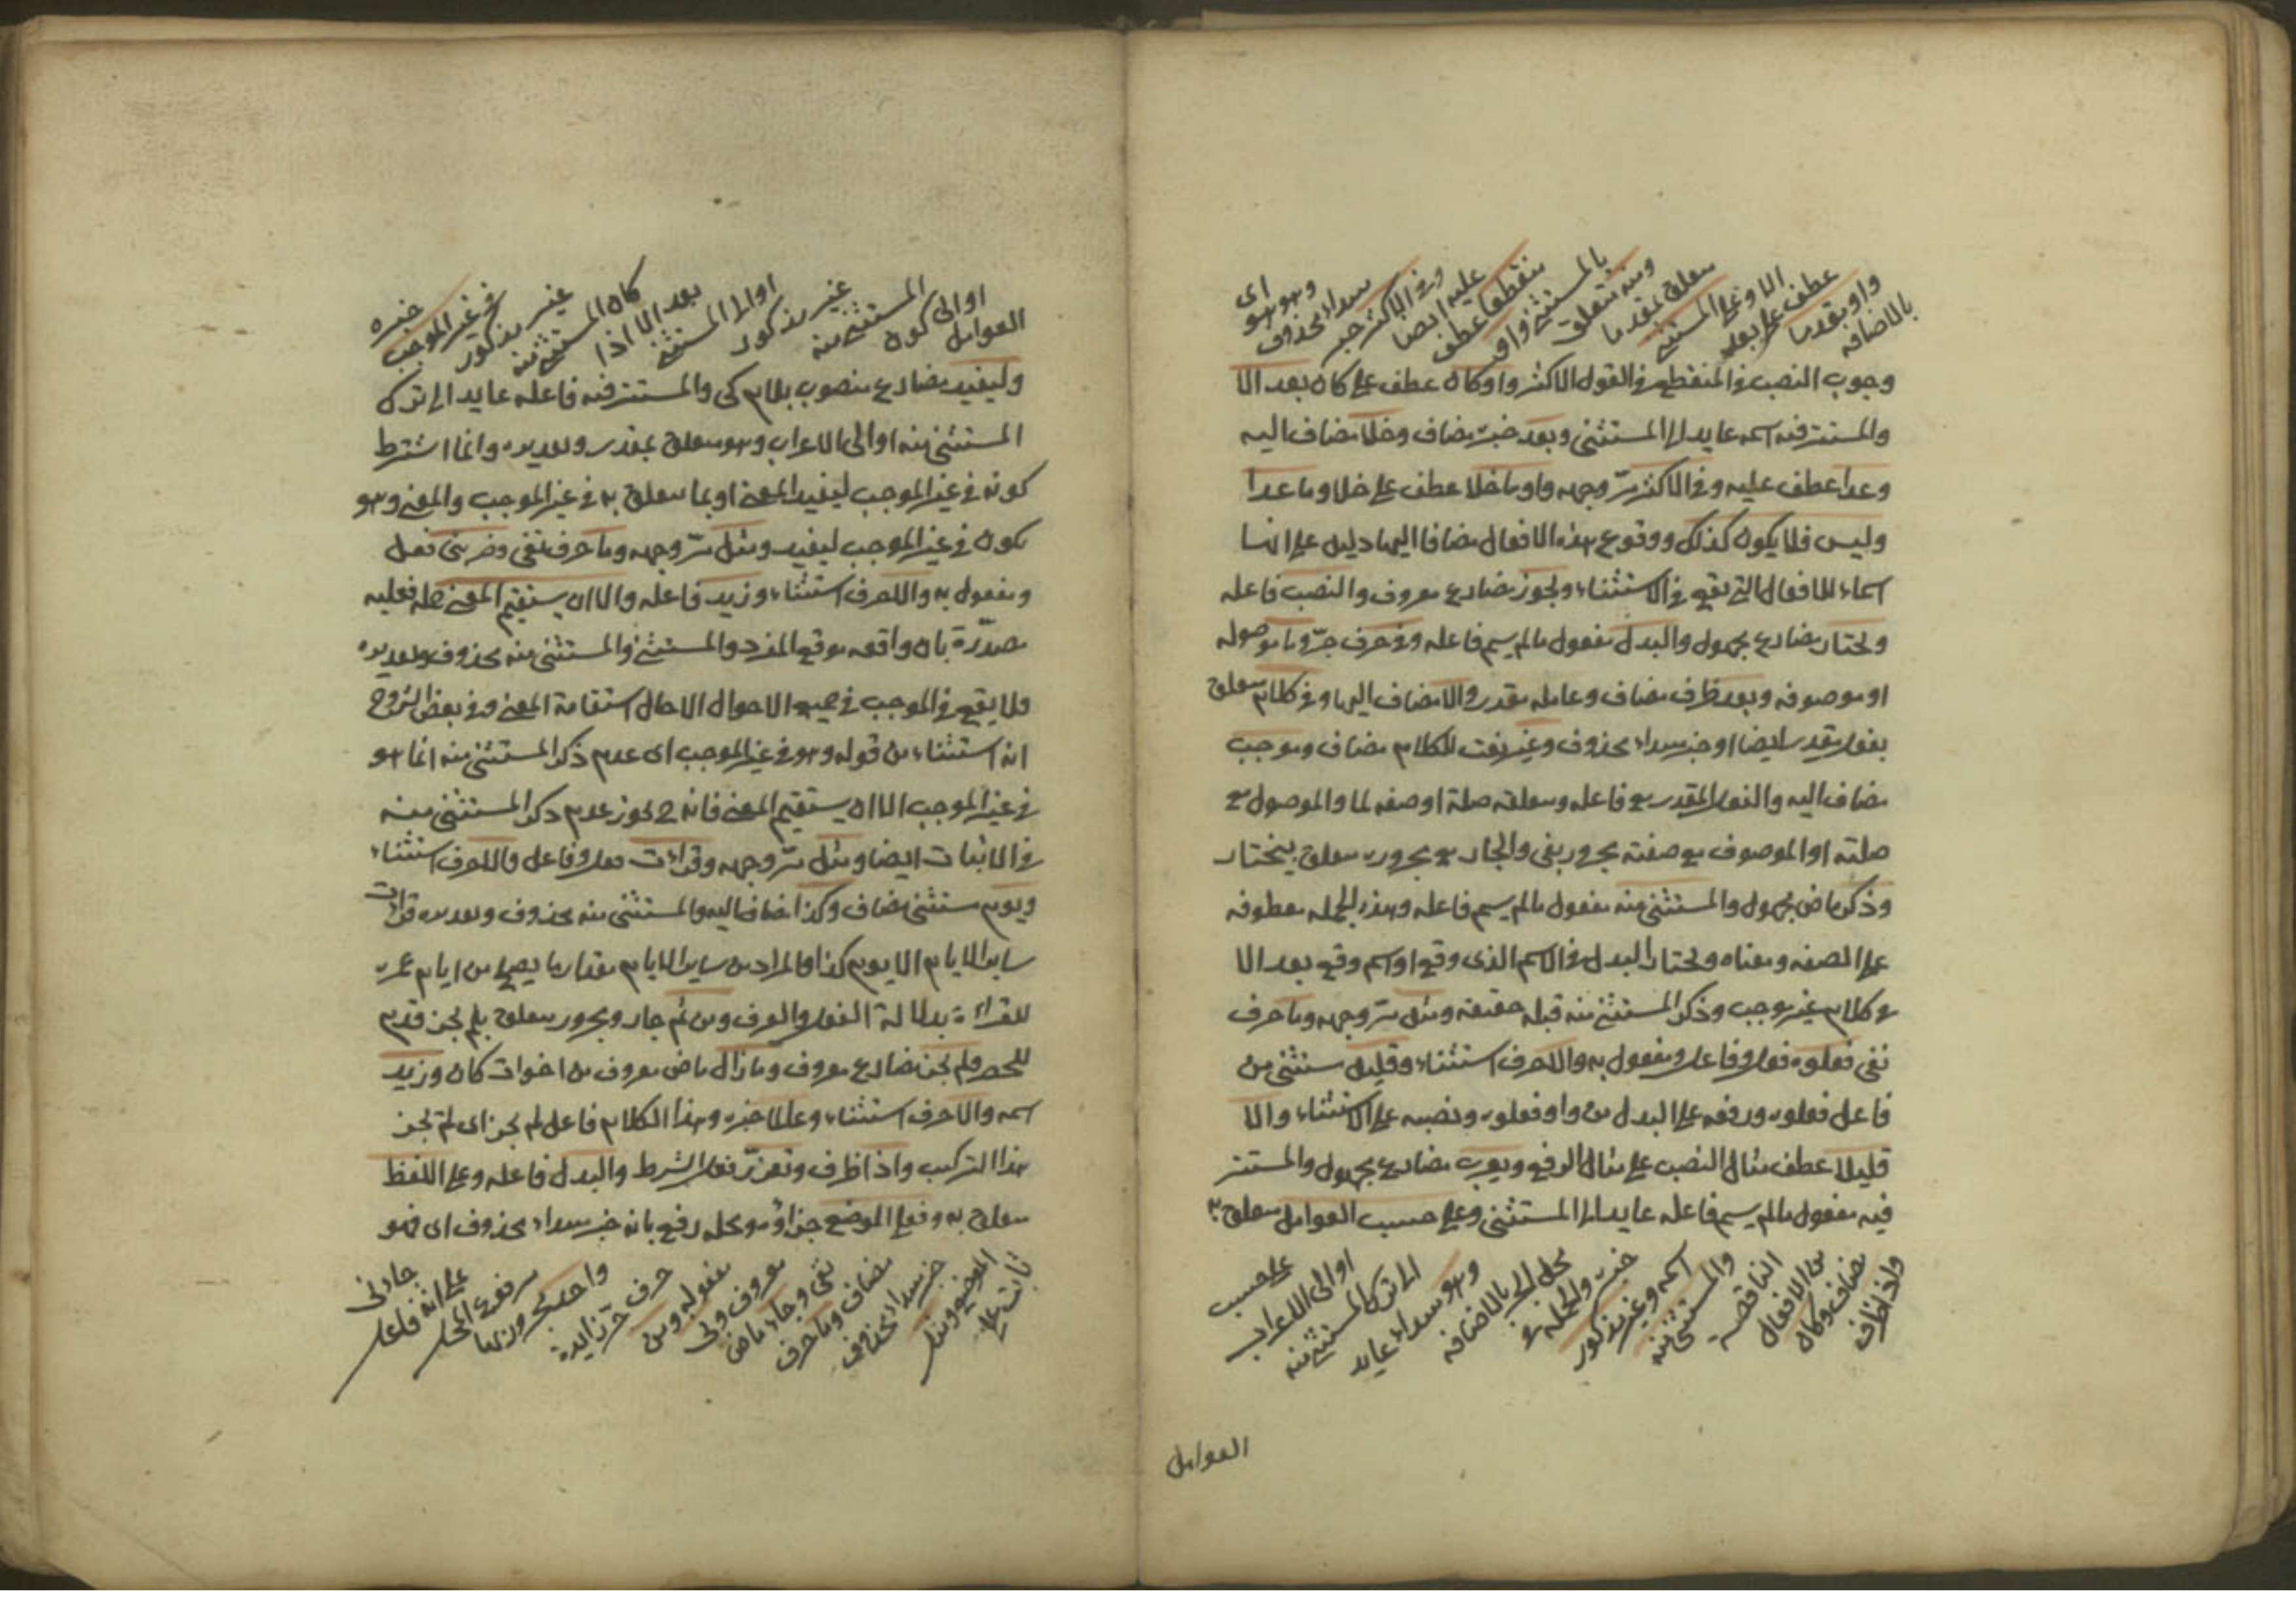 بالاضافه
واو بقدما
عطف على بعد
الا وعلى المستثنى
متعلق بقدما
ومنه متعلق
بالمستثنى واو
منقطعا عطف
عليه ايضا
وفى الاكثر خبر
مبتداء محذوف
وهو هو
اى
وجوب النصب فى المنقطع فى القول الاكثر واو كان عطف على كان بعد الا
والمستتر فيه اسمه عايد الى المستثنى وبعد خبره مضاف وخلا مضاف اليه
وعدا عطف عليه وفى الاكثر مرّ وجهه واو ما خلا عطف على خلا وما عدا
وليس ولا يكون كذلك ووقوع هذه الافعال مضافا اليها دليل على انها
اسماء للافعال التى تقع فى الاستثناء ويجوز مضارع معروف والنصب فاعله
ويختار مضارع مجهول والبدل مفعول مالم يسم فاعله وفى حرف جرّ وما موصوله
او موصوفه وبعد ظرف مضاف وعامله مقدر والا مضاف اليها وفى كلام متعلق
بفعل مقدر ايضا او خبر مبتداء محذوف وغير نعت للكلام مضاف وموجب
مضاف اليه والفعل المقدر مع فاعله ومتعلقه صلة او صفه لما والموصول مع
صلته او الموصوف مع صفته مجرور بفى والجار مع مجروره متعلق بيختار
وذكر ماض مجهول والمستثنى منه مفعول مالم يسم فاعله وهذه الجمله معطوفه
على الصفه ومعناه ويختار البدل فى الاسم الذى وقع او اسم وقع بعد الا
فى كلام غير موجب وذكر المستثنى منه قبله حقيقه ومثل مرّ وجهه وما حرف
نفى فعلوه فعل وفاعل ومفعول به والا حرف استثناء وقليل مستثنى من
فاعل فعلوه ورفعه على البدل من واو فعلوه ونصبه على الاستثناء والا
قليلا عطف مثال النصب على مثال الرفع ويعرب مضارع مجهول والمستتر
فيه مفعول مالم يسم فاعله عايد الى المستثنى وعلى حسب العوامل متعلق به
واذا ظرف
مضاف وكان
من الافعال
الناقصه
والمستثنى منه
اسمه وغير مذكور
خبره والجمله فى
محل الجر بالاضافه
وهو مبتداء عايد
الى ترك المستثنى منه
او الى الاعراب
على حسب
العوامل
العوامل
او الى كون
المستثنى منه
غير مذكور
او الى المستثنى
بعد الا اذا
كان المستثنى منه
غير مذكور
فى غير الموجب
خبره
وليفيد مضارع منصوب بلام كى والمستتر فيه فاعله عايد الى ترك
المستثنى منه او الى الاعراب وهو متعلق بمقدر وتقديره وانما اشترط
كونه فى غير الموجب ليفيد المعنى او بما متعلق به فى غير الموجب والمعنى وهو
يكون فى غير الموجب ليفيد ومثل مرّ وجهه وما حرف نفى وضربنى فعل
ومفعول به والا حرف استثناء وزيد فاعله والا ان يستقيم المعنى جمله فعليه
مصدّرة بان واقعه موقع المفرد والمستثنى والمستثنى منه محذوف وتقديره
ولا يقع فى الموجب فى جميع الاحوال الا حال استقامة المعنى وفى بعض الشروح
انه استثناء من قوله وهو فى غير الموجب اى عدم ذكر المستثنى منه انما هو
فى غير الموجب الا ان يستقيم المعنى فانه ح يجوز عدم ذكر المستثنى منه
فى الاثبات ايضا ومثل مرّ وجهه وقرأت فعل وفاعل والا حرف استثناء
ويوم مستثنى مضاف وكذا مضاف اليه والمستثنى منه محذوف وتقديره قرأت
ساير الايام الا يوم كذا والمراد من ساير الايام مقدار ما يصلح من ايام عمره
للقراءة بدلالة الفعل والعرف ومن ثم جار ومجرور متعلق بلم يجز قدم
للحصر ولم يجز مضارع معروف وما زال ماض معروف من اخوات كان وزيد
اسمه والا حرف استثناء وعالما خبره وهذا الكلام فاعل لم يجز اى لم يجز
هذا التركيب واذا ظرف وتعذّر فعل الشرط والبدل فاعله وعلى اللفظ
متعلق به وفعلى الموضع جزاؤه ومحله رفع بانه خبر مبتداء محذوف اى فهو
ثابت على
الموضع ومثل
خبر مبتداء محذوف
مضاف وما حرف
نفى وجاء ماض
معروف ونى
مفعوله ومن
حرف جر زايدة
واحد مجرور بها
مرفوع المحل
على انه فاعل
جاءنى